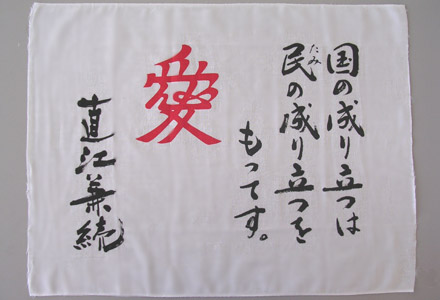 国の成り立つは
民の成り立つを
たみ
もってす。
愛
直江兼続